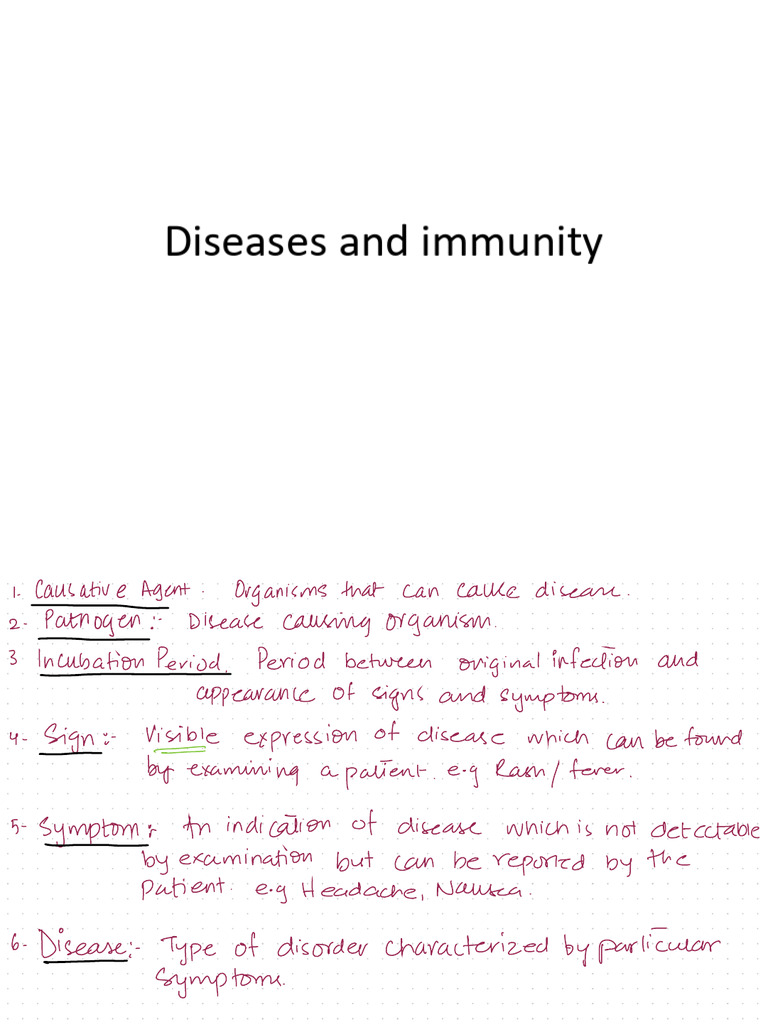 Diseases and immunity
1- Causative Agent : Organisms that can cause disease.
2- Pathogen :- Disease causing organism.
3 Incubation Period. Period between original infection and
appearance of signs and symptoms.
4- Sign :- Visible expression of disease which can be found
by examining a patient. e.g Rash / fever.
5- Symptom :- An indication of disease which is not detectable
by examination but can be reported by the
patient. e.g Headache, Nausea.
6- Disease :- Type of disorder characterized by particular
symptoms.